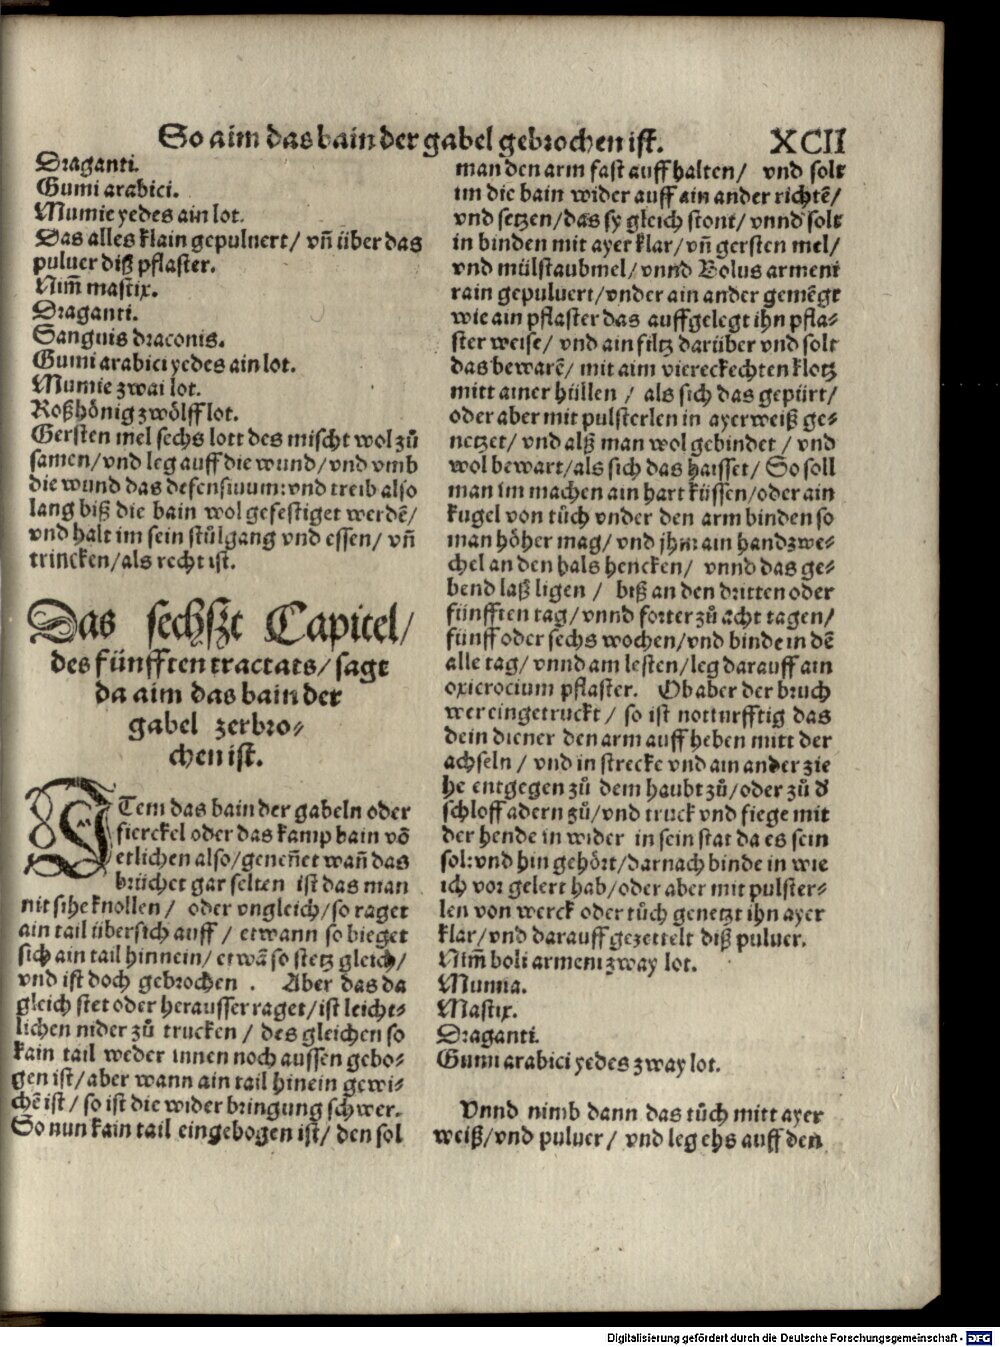 So aim das bain der gabel gebrochen ist. XCII
Draganti.
Gumi arabici.
Mumie yedes ain lot.
Das alles klain gepuluert/ vñ über das
puluer diß pflaster.
Nim̃ mastix.
Draganti.
Sanguis draconis.
Gumi arabici yedes ain lot.
Mumie zwai lot.
Roßhönig zwölff lot.
Gersten mel sechs lott des mischt wol zů
samen/vnd leg auff die wund/vnd vmb
die wund das defensiuum: vnd treib also
lang biß die bain wol gefestiget werdē/
vnd halt im sein stůlgang vnd essen/ vñ
trincken/als recht ist.
Das sechszt Capitel/
des fünfften tractats/ sagt
da aim das bain der
gabel zerbro-
chen ist.
ITem das bain der gabeln oder
fierckel oder das kamp bain vō
etlichen also/geneñet wañ das
brüchet gar selten ist das man
nit sihe knollen/ oder vngleich/so raget
ain tail übersich auff/ etwann so bieget
sich ain tail hinnein/ etwā so stetz gleich/
vnd ist doch gebrochen. Aber das da
gleich stet oder herausser raget/ist leicht-
lichen nider zů trucken/ des gleichen so
kain tail weder innen noch aussen gebo-
gen ist/aber wann ain tail hinein gewi-
chē ist/ so ist die wider bringung schwer.
So nun kain tail eingebogen ist/ den sol
man den arm fast auff halten/ vnd solt
im die bain wider auff ain ander richtē/
vnd setzen/das sy gleich stont/vnnd solt
in binden mit ayer klar/vñ gersten mel/
vnd mülstaubmel/vnnd Bolus armeni
rain gepuluert/vnder ain ander gemēgt
wie ain pflaster das auffgelegt ihn pfla-
ster weise/ vnd ain filtz darüber vnd solt
das bewarē/ mit aim viereckechten klotz
mitt ainer hüllen/ als sich das gepürt/
oder aber mit pulsterlen in ayerweiß ge-
netzet/ vnd alß man wol gebindet/ vnd
wol bewart/als sich das haisset/ So soll
man im machen ain hart küssen/oder ain
kugel von tůch vnder den arm binden so
man höher mag/ vnd jhm ain handzwe-
chel an den hals hencken/ vnnd das ge-
bend laß ligen/ biß an den dritten oder
fünfften tag/vnnd forter zů acht tagen/
fünff oder sechs wochen/vnd binde in dē
alle tag/ vnnd am lesten/leg darauff ain
oxicrocium pflaster. Ob aber der bruch
wer eingetruckt/ so ist notturfftig das
dein diener den arm auff heben mitt der
achseln/ vnd in strecke vnd ain ander zie
he entgegen zů dem haubt zů/oder zů d'
schloff adern zů/vnd truck vnd fiege mit
der hende in wider in sein stat da es sein
sol: vnd hin gehört/darnach binde in wie
ich vor gelert hab/oder aber mit pulster-
len von werck oder tůch genetzt ihn ayer
klar/vnd darauff gezettelt diß puluer.
Nim̃ boli armeni zway lot.
Mumia.
Mastix.
Draganti.
Gumi arabici yedes zway lot.
Vnnd nimb dann das tůch mitt ayer
weiß/vnd puluer/ vnd leg ehs auff den
Digitalisierung gefördert durch die Deutsche Forschungsgemeinschaft - DFG